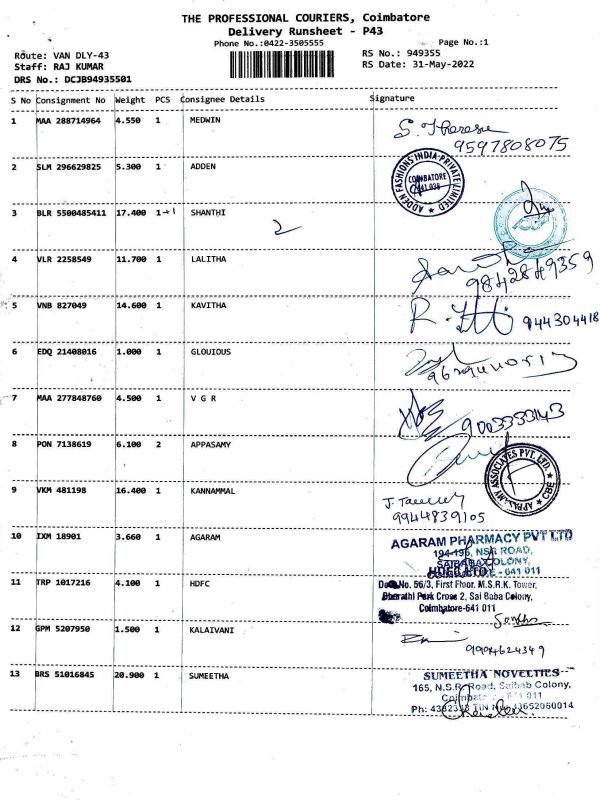 THE PROFESSIONAL COURIERS, Coimbatore
Delivery Runsheet - P43
Phone No.:0422-3505555 Page No.:1
Route: VAN DLY-43 RS No.: 949355
Staff: RAJ KUMAR RS Date: 31-May-2022
DRS No.: DCJB94935501
S No Consignment No Weight PCS Consignee Details Signature
1 MAA 288714964 4.550 1 MEDWIN
9597808075
2 SLM 296629825 5.300 1 ADDEN
ADDEN FASHIONS INDIA PRIVATE LIMITED
COIMBATORE
641 038
3 BLR 5500485411 17.400 1→1 SHANTHI
2
4 VLR 2258549 11.700 1 LALITHA
9842849359
5 VNB 827049 14.600 1 KAVITHA
944304418
6 EDQ 21408016 1.000 1 GLOUIOUS
7 MAA 277848760 4.500 1 V G R
9003333143
8 PON 7138619 6.100 2 APPASAMY
APPASAMY ASSOCIATES PVT. LTD. CBE
9 VKM 481198 16.400 1 KANNAMMAL
9944839105
10 IXM 18901 3.660 1 AGARAM
AGARAM PHARMACY PVT LTD
194-196, NSR ROAD,
SAIBABA COLONY,
- 641 011
11 TRP 1017216 4.100 1 HDFC
No. 56/3, First Floor. M.S.R.K. Tower,
Bharathi Park Cross 2, Sai Baba Colony,
Coimbatore-641 011
12 GPM 5207950 1.500 1 KALAIVANI
9994624349
13 BRS 51016845 20.900 1 SUMEETHA
SUMEETHA NOVELTIES
165, N.S.R. Road, Saibab Colony,
Ph: